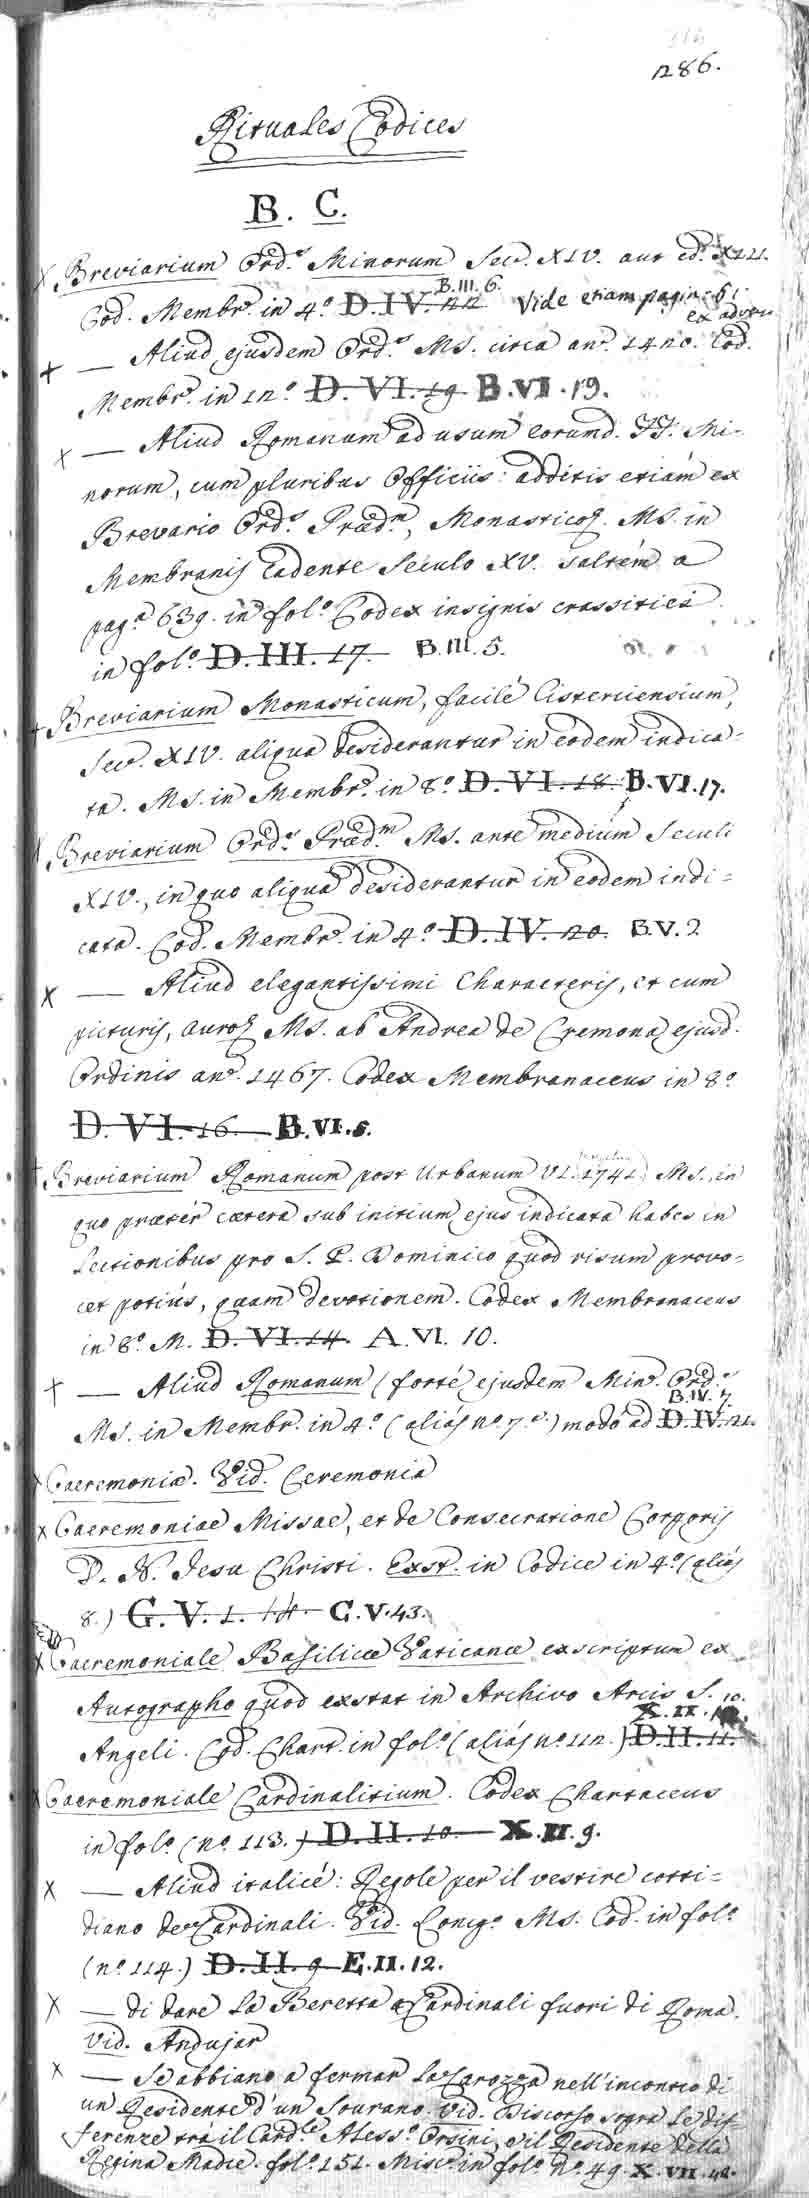 286.
Rituales Codices
B. C.
Breviarium Ord.s Minorum Sec. XIV. aut ed. XIII.
B.III.6.
Cod. Membr. in 4.o D.IV.22 Vide etiam pagin. 61
ex adverso
— Aliud ejusdem Ord.s MS. circa an. 1420. Cod.
Membr. in 12.o D.VI.19 B.VI.19.
— Aliud Romanum ad usum eorumd. FF. Mi-
norum, cum pluribus Officiis: additis etiám ex
Brevario Ord.s Præd.m, Monasticoꝝ. MS. in
Membranis Cadente Seculo XV. saltém a
pag.a 639. in fol.o Codex insignis crassitiei
in fol.o D.III.17. B.III.5.
Breviarium Monasticum, facilé Cisterciensium,
Sec. XIV. aliqua desiderantur in eodem indica-
ta. MS. in Membr. in 8.o D.VI.18. B.VI.17.
Breviarium Ord.s Præd.m MS. ante medium Seculi
XIV., in quo aliqua desiderantur in eodem indi=
cata. Cod. Membr. in 4.o D.IV.20. B.V.2
— Aliud elegantissimi Characteris, et cum
picturis, auroꝝ MS. ab Andrea de Cremona ejusd.
Ordinis an. 1467. Codex Membranaceus in 8.o
D.VI.16. B.VI.5.
Breviarium Romanum post Urbanum VI. 1741 MS. in
quo prætér cætera sub initium ejus indicata habes in
Lectionibus pro S. P. Dominico quod risum provo=
cet potiús, quam devotionem. Codex Membranaceus
in 8.o M. D.VI.14. A.VI.10.
— Aliud Romanum (forté ejusdem Min. Ord.s
B.IV.7.
MS. in Membr. in 4.o (aliás n.o 7.) modó ad D.IV.21.
Caeremoniæ. Vid. Ceremonia
Caeremoniae Missae, et de Consecratione Corporis
D. N. Jesu Christi. Exst. in Codice in 4.o (aliás
8.) G.V.1.14. C.V.43.
Caeremoniale Basilicæ Vaticanæ exscriptum ex
Autographo quod exstat in Archivo Arcis S.
10.
X.II.
Angeli. Cod. Chart. in fol.o (aliás n.o 112.) D.II.11.
Caeremoniale Cardinalitium. Codex Chartaceus
in fol.o (n.o 113.) D.II.10. X.II.9.
— Aliud italicé: Regole per il vestire cotti=
diano de Cardinali. Vid. Comg.o MS. Cod. in fol.o
(n.o 114.) D.II.9 E.II.12.
— di dare la Beretta a Cardinali fuori di Roma.
Vid. Andujar
— Se abbiano a fermar la Carozza nell'incontro di
un Residente d'un Sourano. Vid. Discorso sopra le dif
ferenze trá il Card.le Aless.o Orsini, e il Residente della
Regina Madre. fol.o 151. Misc. in fol.o n.o 49. X.VII.42.